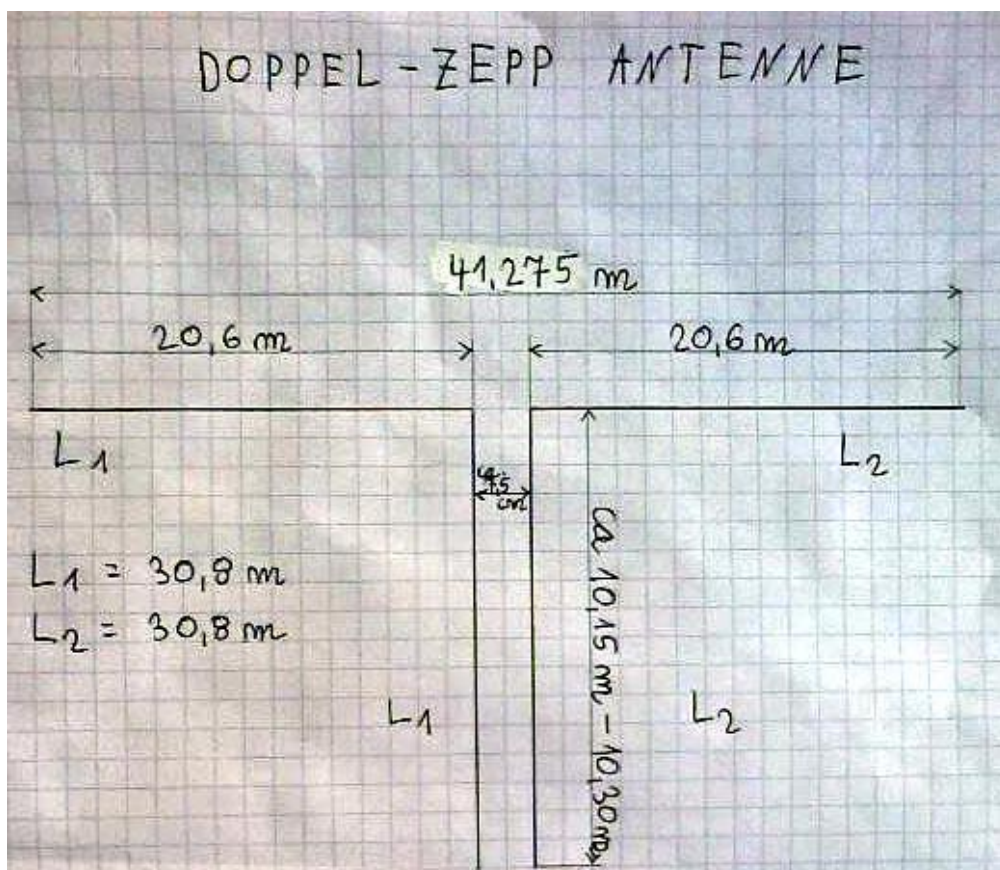 DOPPEL-ZEPP ANTENNE
41,275 m
20,6 m
20,6 m
L1
L2
7,5
cm
L1 = 30,8 m
L2 = 30,8 m
ca 10,15 m - 10,30 m
L1
L2